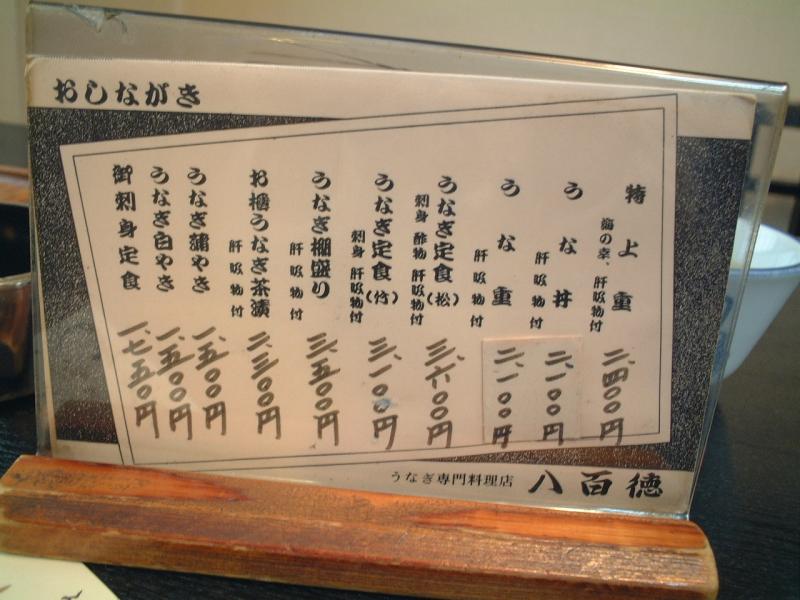 おしながき
特上重
海の幸、肝吸物付
二、四〇〇円
うな丼
肝吸物付
二、一〇〇円
うな重
肝吸物付
二、一〇〇円
うなぎ定食(松)
刺身 酢物 肝吸物付
三、六〇〇円
うなぎ定食(竹)
刺身 肝吸物付
三、一〇〇円
うなぎ棚盛り
肝吸物付
三、五〇〇円
お櫃うなぎ茶漬
肝吸物付
二、三〇〇円
うなぎ蒲やき
一、五〇〇円
うなぎ白やき
一、五〇〇円
御刺身定食
一、七五〇円
うなぎ専門料理店
八百徳